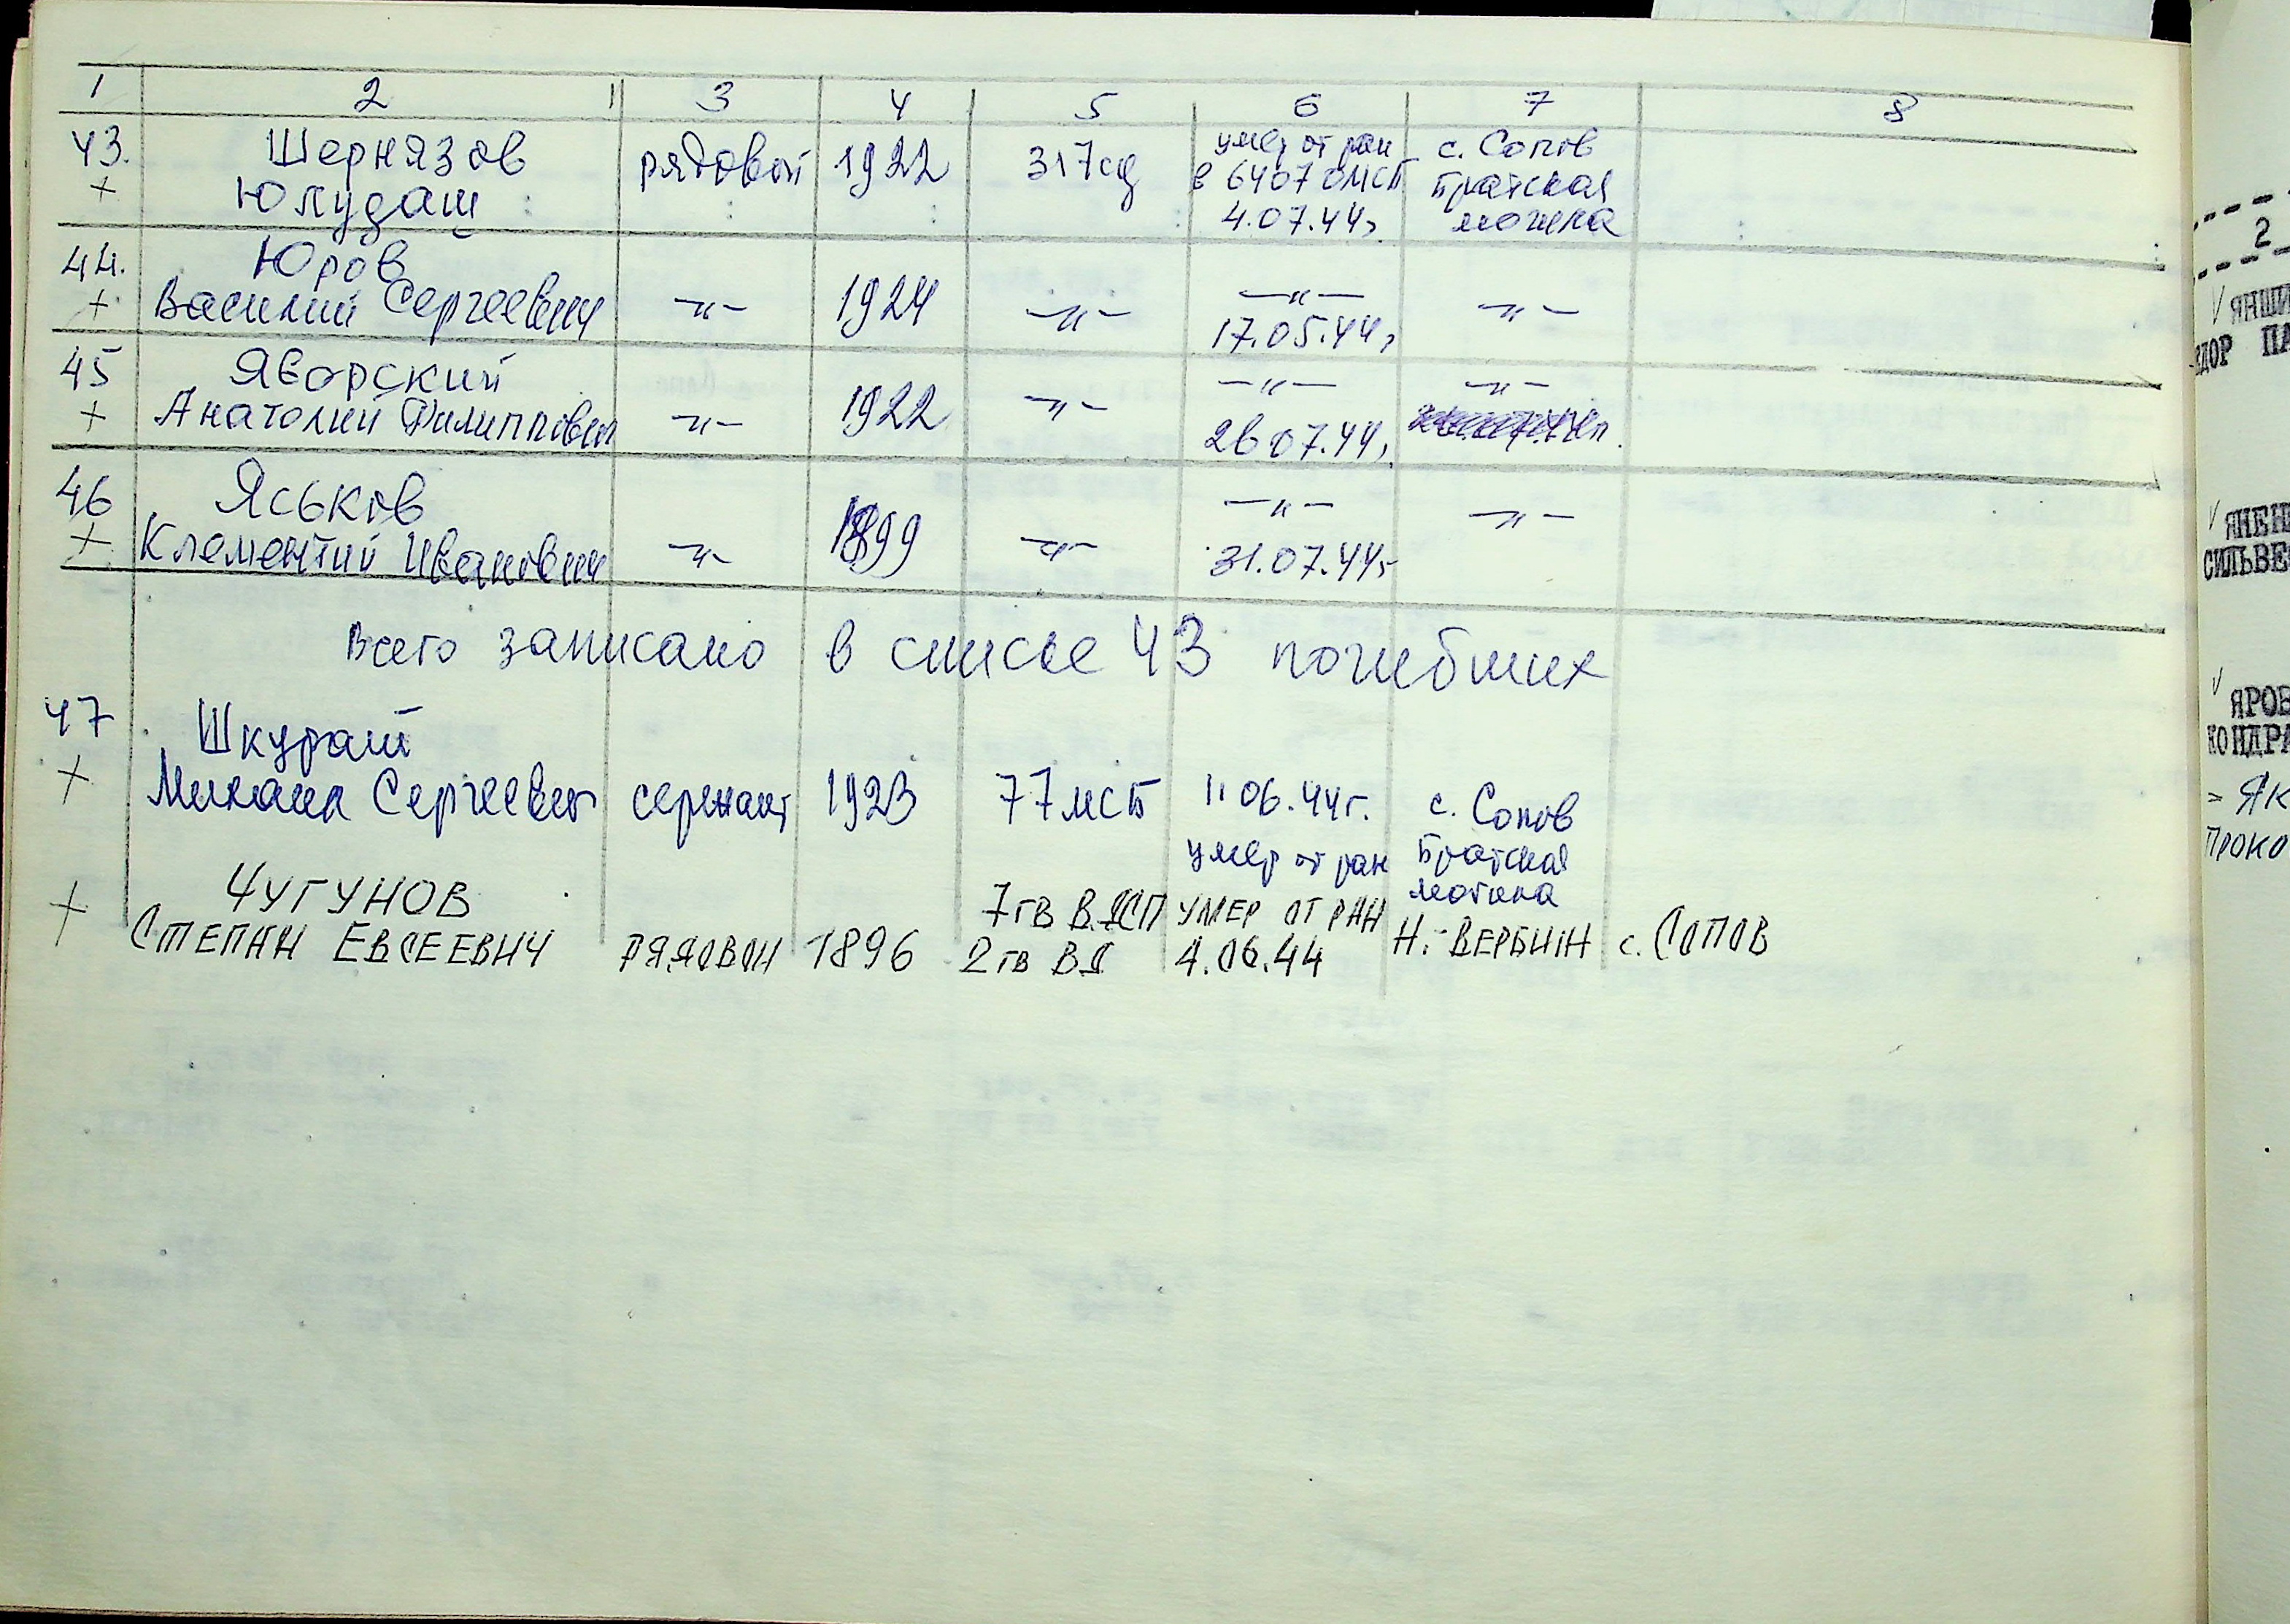 1 2 3 4 5 6 7 8
43. Шернязов рядовой 1922 317сд умер от ран с. Сопов
+ Юлудаш в 6407 ОМСБ Братская
4.07.44г могила
44. Юров
+ Василий Сергеевич -"- 1924 -"- -"- -"-
17.05.44г
45 Яворский -"- -"-
+ Анатолий Филиппович -"- 1922 -"- 26 07.44г
46 Яськов -"- -"-
+ Клементий Иванович -"- 1899 -"- 31.07.44г
Всего записано в списке 43 погибших
47 Шкурат
+ Михаил Сергеевич сержант 1923 77 мсб 11 06.44г. с. Сопов
умер от ран Братская
могила
+ ЧУГУНОВ 7 гв ВДСП УМЕР ОТ РАН
СТЕПАН ЕВСЕЕВИЧ РЯДОВОЙ 1896 2 гв ВД 4.06.44 Н. ВЕРБИЖ с. СОПОВ
2
ЯНШИ
ПА
СИЛЬВЕ
ЯРОВ
КОНДРА
ЯК
ПРОКО